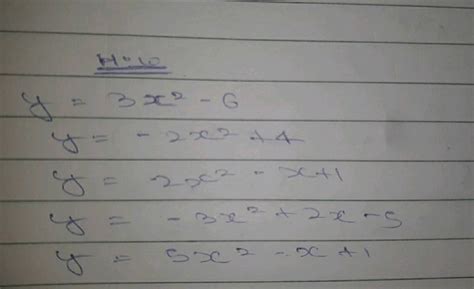 H.W
y = 3x² - 6
y = -2x² + 4
y = 2x² - x + 1
y = -3x² + 2x - 5
y = 5x² - x + 1